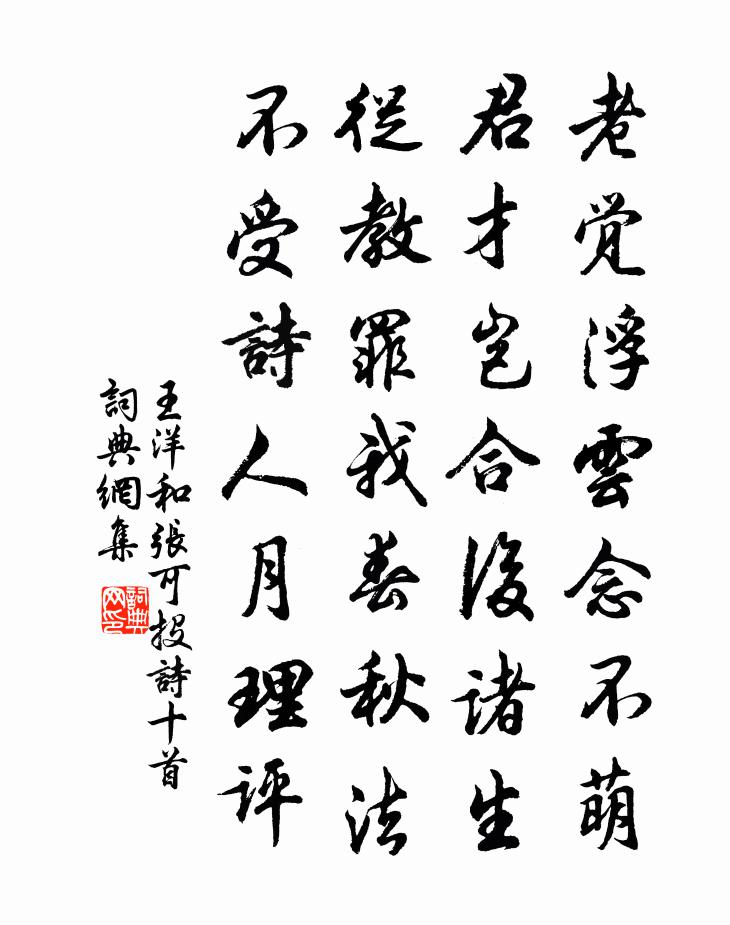 老覺浮雲念不萌
君才豈合後諸生
從教罪我春秋法
不受詩人月理評
王洋和張可投詩十首
詞典網集
詞典網印